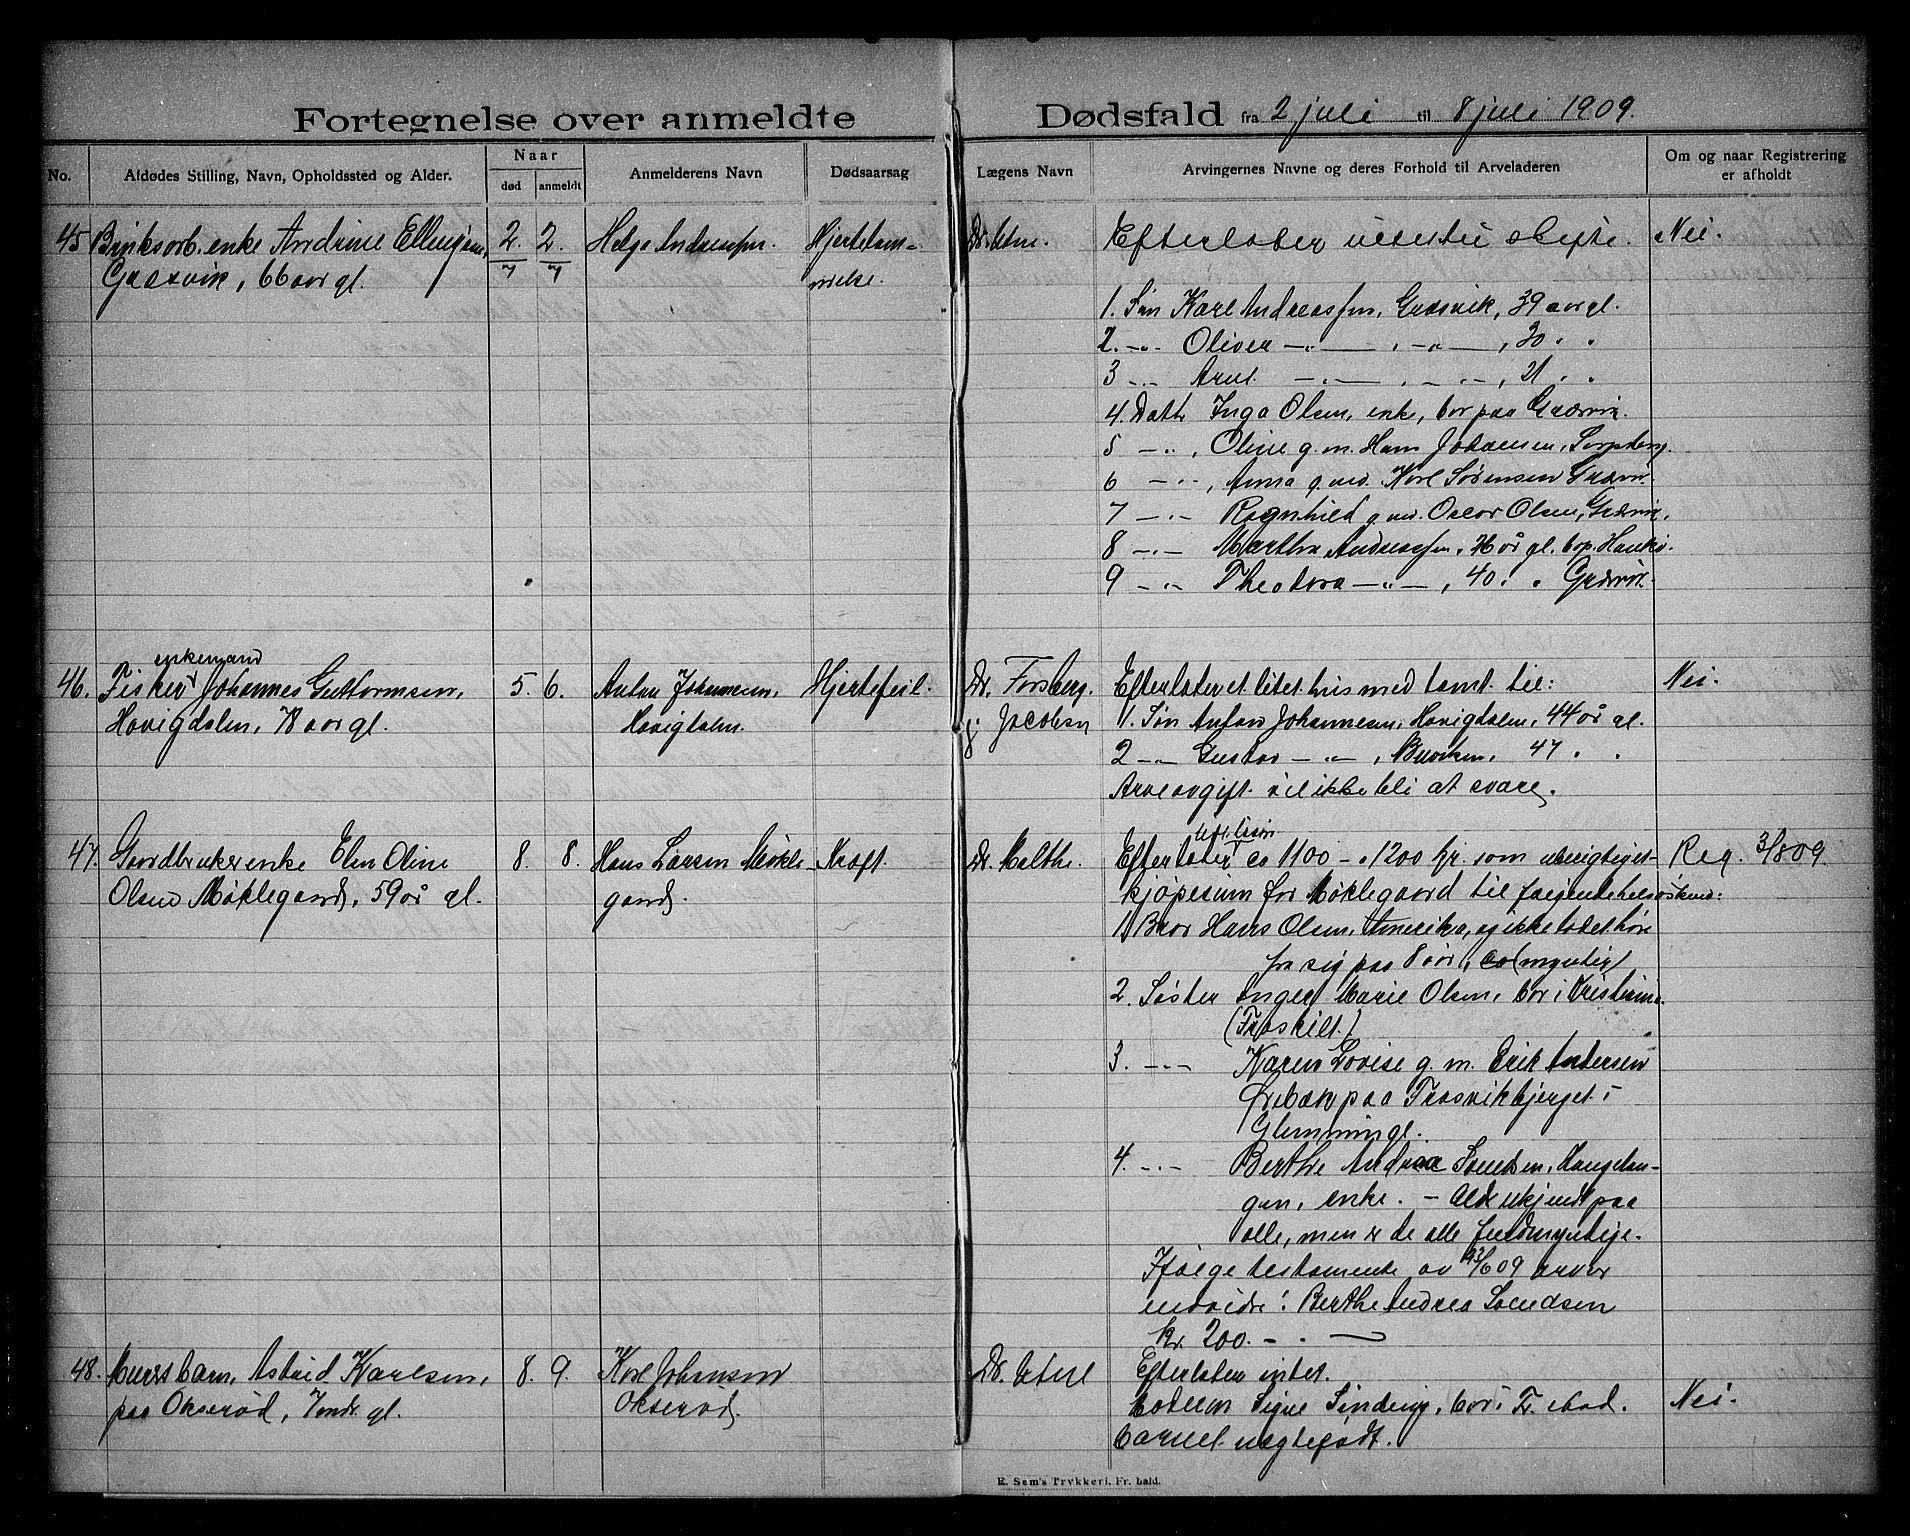 Fortegnelse over anmeldte Dødsfald fra 2 juli til 8 juli 1909.
No.
Afdødes Stilling, Navn, Opholdssted og Alder.
Naar
død
anmeldt
Anmelderens Navn
Dødsaarsag
Lægens Navn
Arvingernes Navne og deres Forhold til Arveladeren
Om og naar Registrering
er afholdt
45 enke Andrine
Græsvik, 66 aar gl.
2/7
2/7
Helga Andreassen.
Hjertelam-
melse.
Dr.
Efterlater skifte.
1. Søn Karl Andreassen, Græsvik, 39 aar gl.
2. -"- Oliver -"- , -"- , 30 " "
3 -"- -"- , -"- , 21 " "
4. Datt. Inga Olsen, enke, bor paa Græsvik.
5 -"-, Oline g. m. Hans Johansen, Sarpsborg.
6 -"-, Anna g. m. Karl Sørensen Græsvik.
7 -"- Ragnhild g. m. Oscar Olsen, Græsvik.
8 -"- Martha Andreassen, år gl. Hankø.
9 -"- Theodora -"- , 40 " " Græsvik.
Nei.
46. Fisker enkemand Johannes Guttormsen,
Hovigdalen, 78 aar gl.
5. 6.
Anton Johannesen,
Hovigdalen.
Hjertefeil.
Dr. Forsberg.
Jacobsen
Efterlater et litet hus med tomt til:
1. Søn Anton Johannesen, Hovigdalen, 44 år gl.
2 -"- Gustav -"- , 47 " "
Arveavgift vil ikke bli at svare.
Nei.
47. Gaardbrukerenke Elen Oline
Olsen Møklegaard, 59 år gl.
8. 8.
Hans Larsen Møkle-
gaard.
Kræft.
Dr. Malthe.
Efterlater ca 1100 - a 1200 kr. som
kjøpesum for Møklegaard til følgende helsøskend:
1) Bror Hans Olsen, Amerika, ei ikke latet høre
fra sig paa 8 aar, (myndig)
2. Søster Inger Marie Olsen, bor i Kristiania
(Fraskilt.)
3. -"- Karen Lovise g. m. Erik Andersen
Ørebæk paa Trosvikbjerget i
Glemminge.
4. -"- Berthe Andrea Svendsen,
enke. - Alder ukjendt paa
alle, men er de alle fuldmyndige.
Ifølge testamente av 23/6 09 arver
Berthe Andrea Svendsen
kr. 200. -
Reg. 3/8 09.
48. barn, Astrid Karlsen,
paa Okserød, 7 mdr. gl.
8. 9.
Karl Johansen
Okserød.
Dr.
Efterlater intet.
Moderen Signe bor i Fr.stad.
barnet uægtefødt.
Nei.
E. Sem's Trykkeri, Fr.hald.